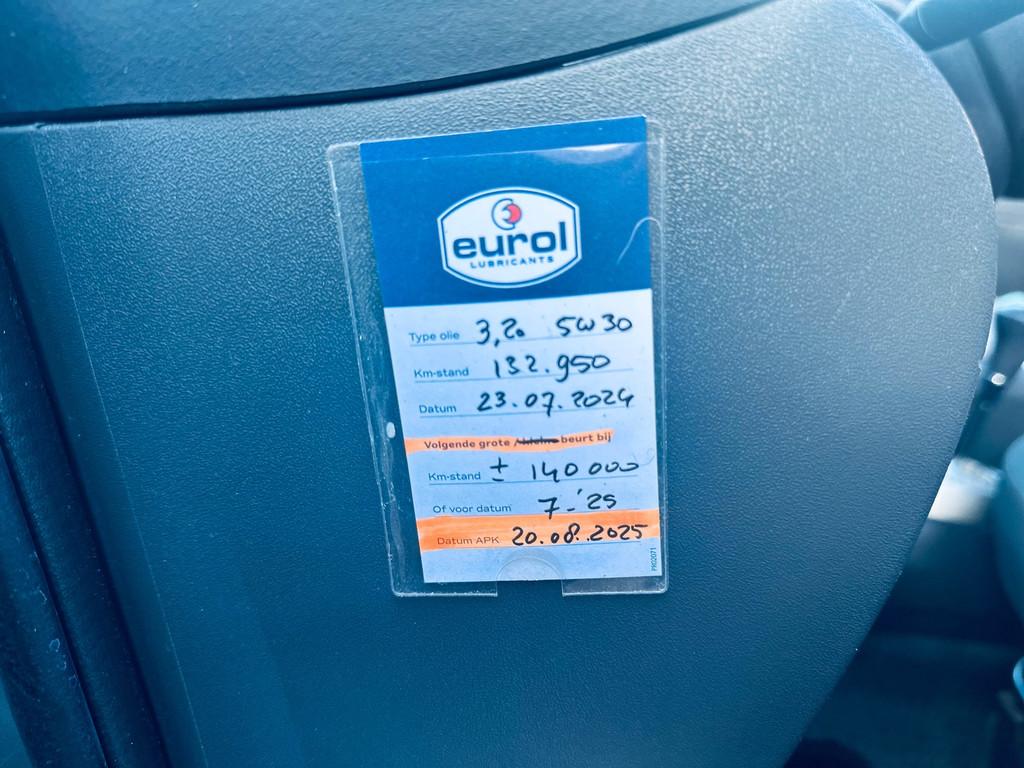 eurol
LUBRICANTS
Type olie 3,20 5W30
Km-stand 132.950
Datum 23.07.2024
Volgende grote / kleine beurt bij
Km-stand ± 140 000
Of voor datum 7-'25
Datum APK 20.08.2025
PR02071